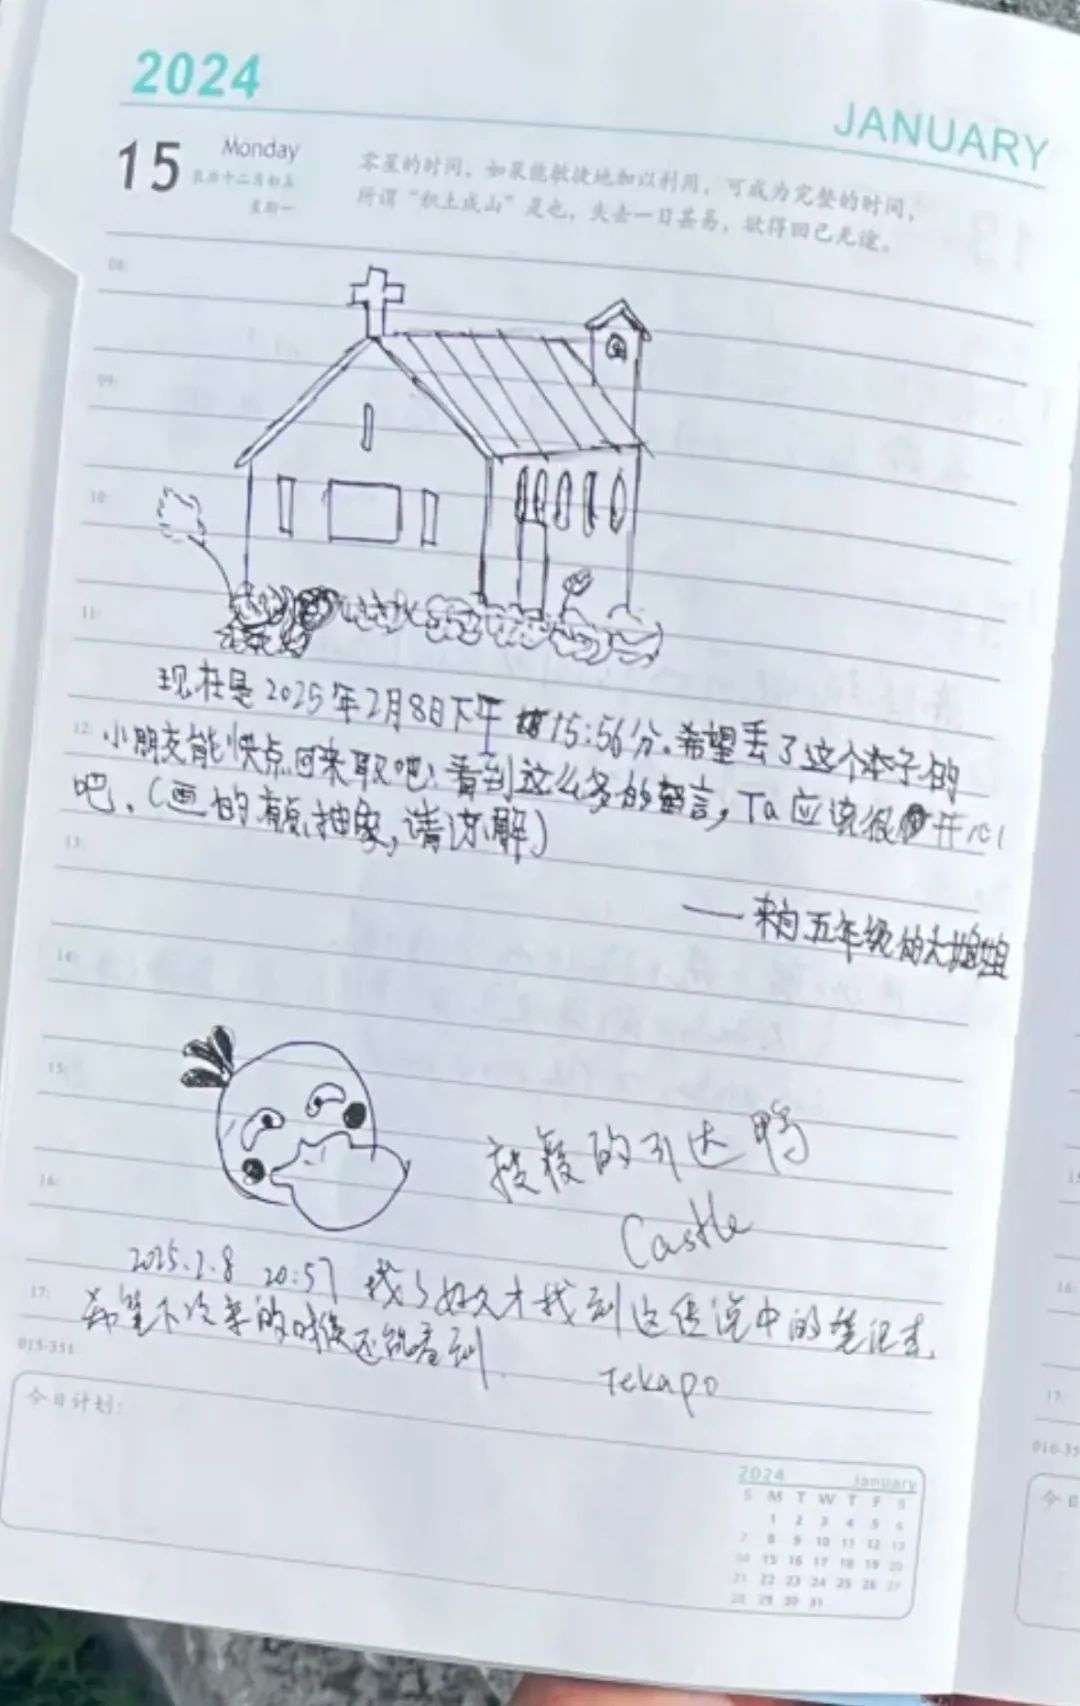 2024
JANUARY
15 Monday
农历十二月初五
星期一
零星的时间，如果能敏捷地加以利用，可成为完整的时间，
所谓“积土成山”是也，失去一日甚易，欲得回已无途。
08:
09:
10:
11:
现在是2025年2月8日下午15:56分。希望丢了这个本子的
12:
小朋友能快点回来取吧！看到这么多的留言，Ta应该很开心
吧。（画的有点抽象，请谅解）
13:
——来自五年级的大姐姐
14:
15:
的引达鸭
16:
Castle
2025.2.8 20:57 找了好久才找到这传说中的笔记本，
17:
希望下次来的时候还能看到
Tekapo
015-351
今日计划：
2024 January
S M T W T F S
1 2 3 4 5 6
7 8 9 10 11 12 13
14 15 16 17 18 19 20
21 22 23 24 25 26 27
28 29 30 31
16:
17:
今日